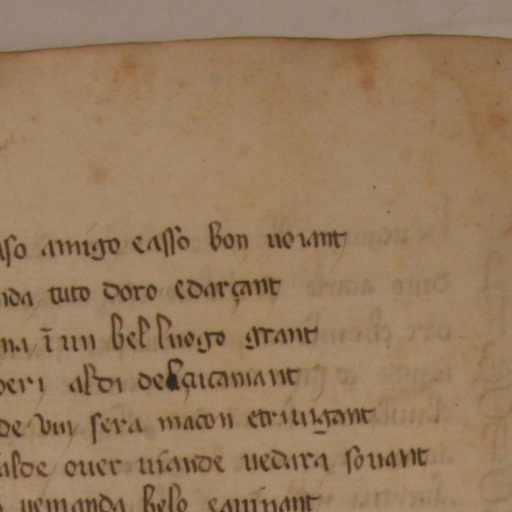 aſo amigo e aſſo bon uoiant
nda tuto doro e darçant
na ī un bel luogo grant
peri al di del çicamant
de vui ſera macon e triuigant
alde ouer uiande uedara ſouant
uemanda belo